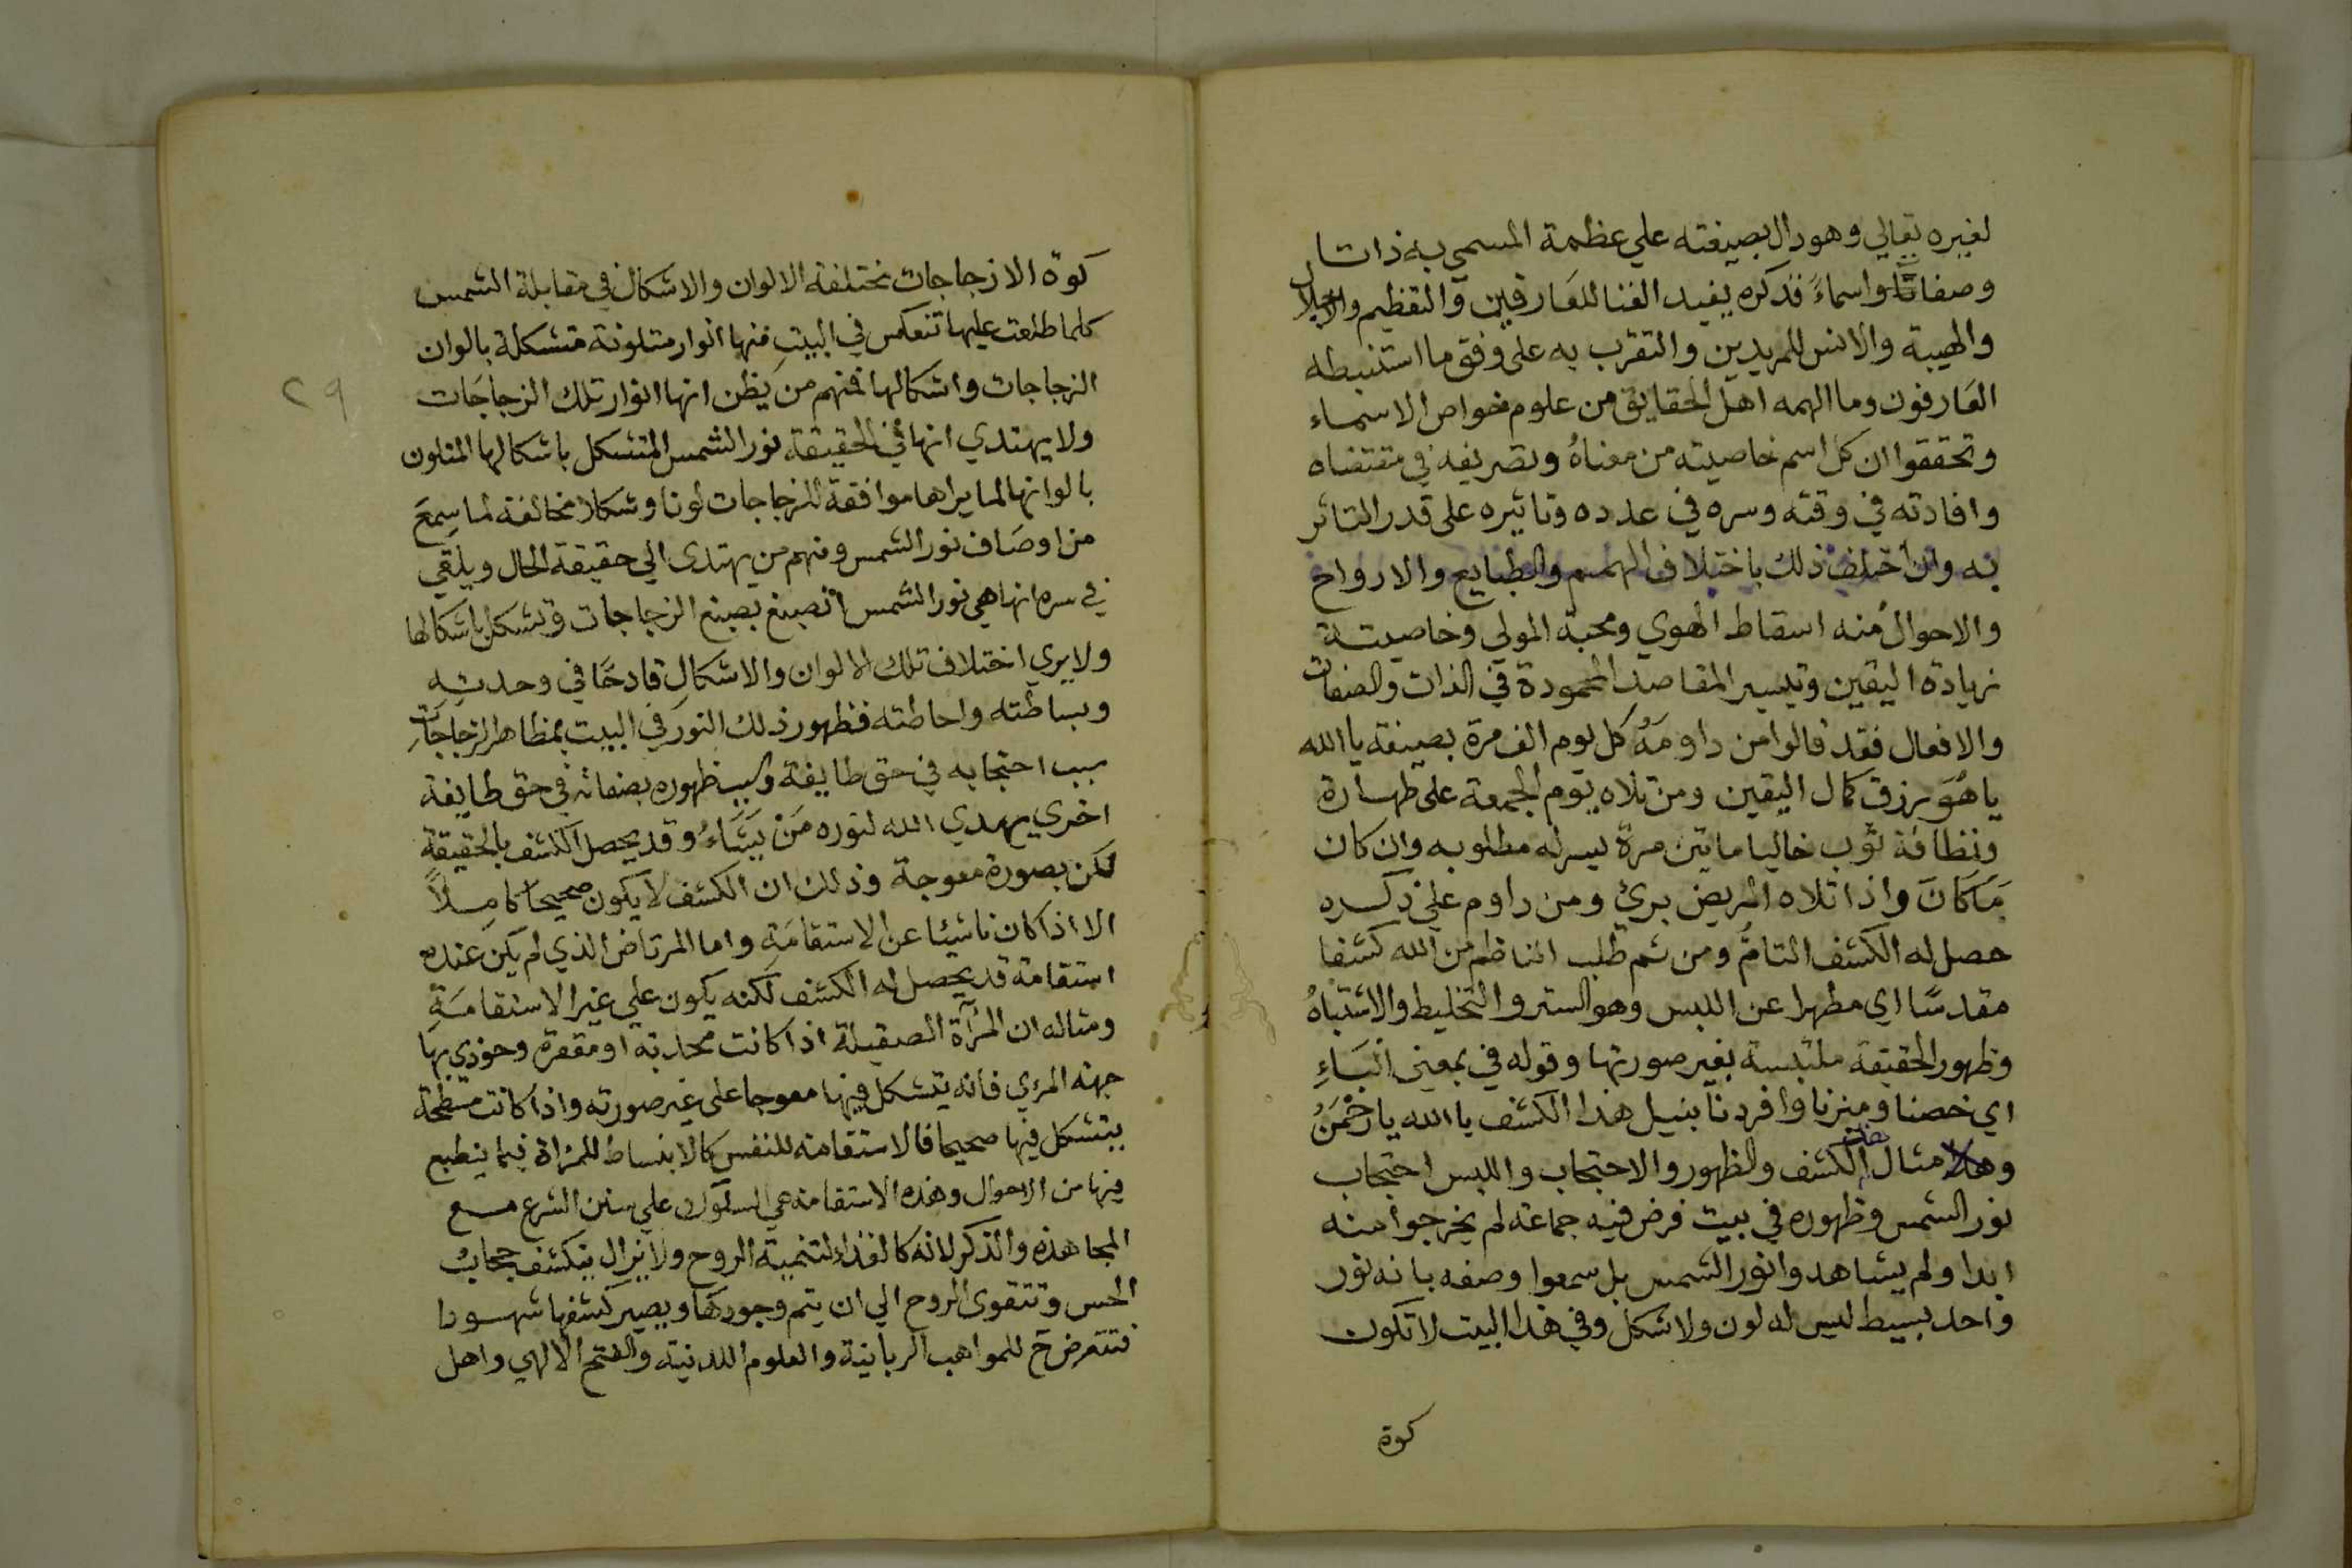 لغيره تعالي وهو دال بصيغته علي عظمة المسمي به ذاتا
وصفاتا واسماءً فذكره يفيد الفنا للعارفين والتعظيم والاجلال
والهيبة والانس للمريدين والتقرب به على وفق ما استنبطه
العارفون وما الهمه اهل الحقايق من علوم خواص الاسماء
وتحققوا ان كل اسم خاصيته من معناهُ وتصريفه في مقتضاه
وافادته في وقته وسره في عدده وتاثيره على قدر التاثر
به وان اختلف ذلك باختلاف الهمم والطبايع والارواح
والاحوال منه اسقاط الهوي ومحبة المولي وخاصيتة
زيادة اليقين وتيسير المقاصد المحمودة في الذات والصفات
والافعال فقد قالوا من داومَهُ كل يوم الف مرة بصيغة يا الله
يا هُوَ يرزق كمال اليقين ومن تلاه يوم الجمعة على طهارة
ونظافة ثوب خاليا ماتين مرة يسر له مطلوبه وان كان
مَا كَانَ واذا تلاه المريض برئ ومن داوم علي ذكره
حصل له الكشف التامُّ ومن ثم طلب الناظم من الله كشفا
مقدسًا اي مطهرا عن اللبس وهو الستر والتخليط والاشتباهُ
وظهور الحقيقة ملتبسة بغير صورتها وقوله في بمعني الباءِ
اي خصنا وميزنا وافردنا بنيل هذا الكشف يا الله يا رحمنُ
وهذا مثال الكشف والظهور والاحتجاب واللبس احتجاب
نور الشمس وظهوره في بيت فرض فيه جماعة لم يخرجوا منه
ابدا ولم يشاهدوا نور الشمس بل سمعوا وصفه بانه نور
واحد بسيط ليس له لون ولا شكل وفي هذا البيت لا تكون
كوة
٢٩
كوة الا زجاجات مختلفة الالوان والاشكال في مقابلة الشمس
كلما طلعت عليها تنعكس في البيتِ منها انوار متلونة متشكلة بالوان
الزجاجات واشكالها فمنهم من يظن انها انوار تلك الزجاجات
ولا يهتدي انها في الحقيقة نور الشمس المتشكل باشكالها المتلون
بالوانها لما يراها موافقة للزجاجات لونا وشكلا مخالفة لما سمعَ
من اوصَاف نور الشمس ومنهم من يهتدى الي حقيقة الحال ويلقي
في سره انها هي نور الشمس انصبغ بصبغ الزجاجات وتشكل باشكالها
ولا يري اختلاف تلك الالوان والاشكال قادحًا في وحدتِهِ
وبساطته واحاطته فظهور ذلك النور في البيت بمظاهر الزجاجَاتِ
سبب احتجابه في حق طايفة وسبب ظهوره بصفاته في حق طايفة
اخري يهدي الله لنوره مَن يَشَاءُ وقد يحصل الكشف بالحقيقة
لكن بصورة معوجة وذلك ان الكشف لا يكون صحيحا كاملاً
الا اذا كان ناشيا عن الاستقامَةِ واما المرتاض الذي لم يكن عنده
استقامة قد يحصل له الكشف لكنه يكون علي غير الاستقامَةِ
ومثاله ان المرآة الصقيلة اذا كانت محدبة او مقعرة وحوذي بها
جهة المرئي فانه يتشكل فيها معوجا على غير صورته واذا كانت مسطحة
يتشكل فيها صحيحا فالاستقامة للنفس كالانبساط للمراة فيما ينطبع
فيها من الاحوال وهذه الاستقامة هي السلوك علي سنن الشرع مع
المجاهدة والذكر لانه كالغذاء لتنمية الروح ولا يزال ينكشف حجابُ
الحس وتتقوى الروح الي ان يتم وجودها ويصير كشفها شهودا
فتتعرض ح للمواهب الربانية والعلوم اللدنية والفتح الالهي واهل